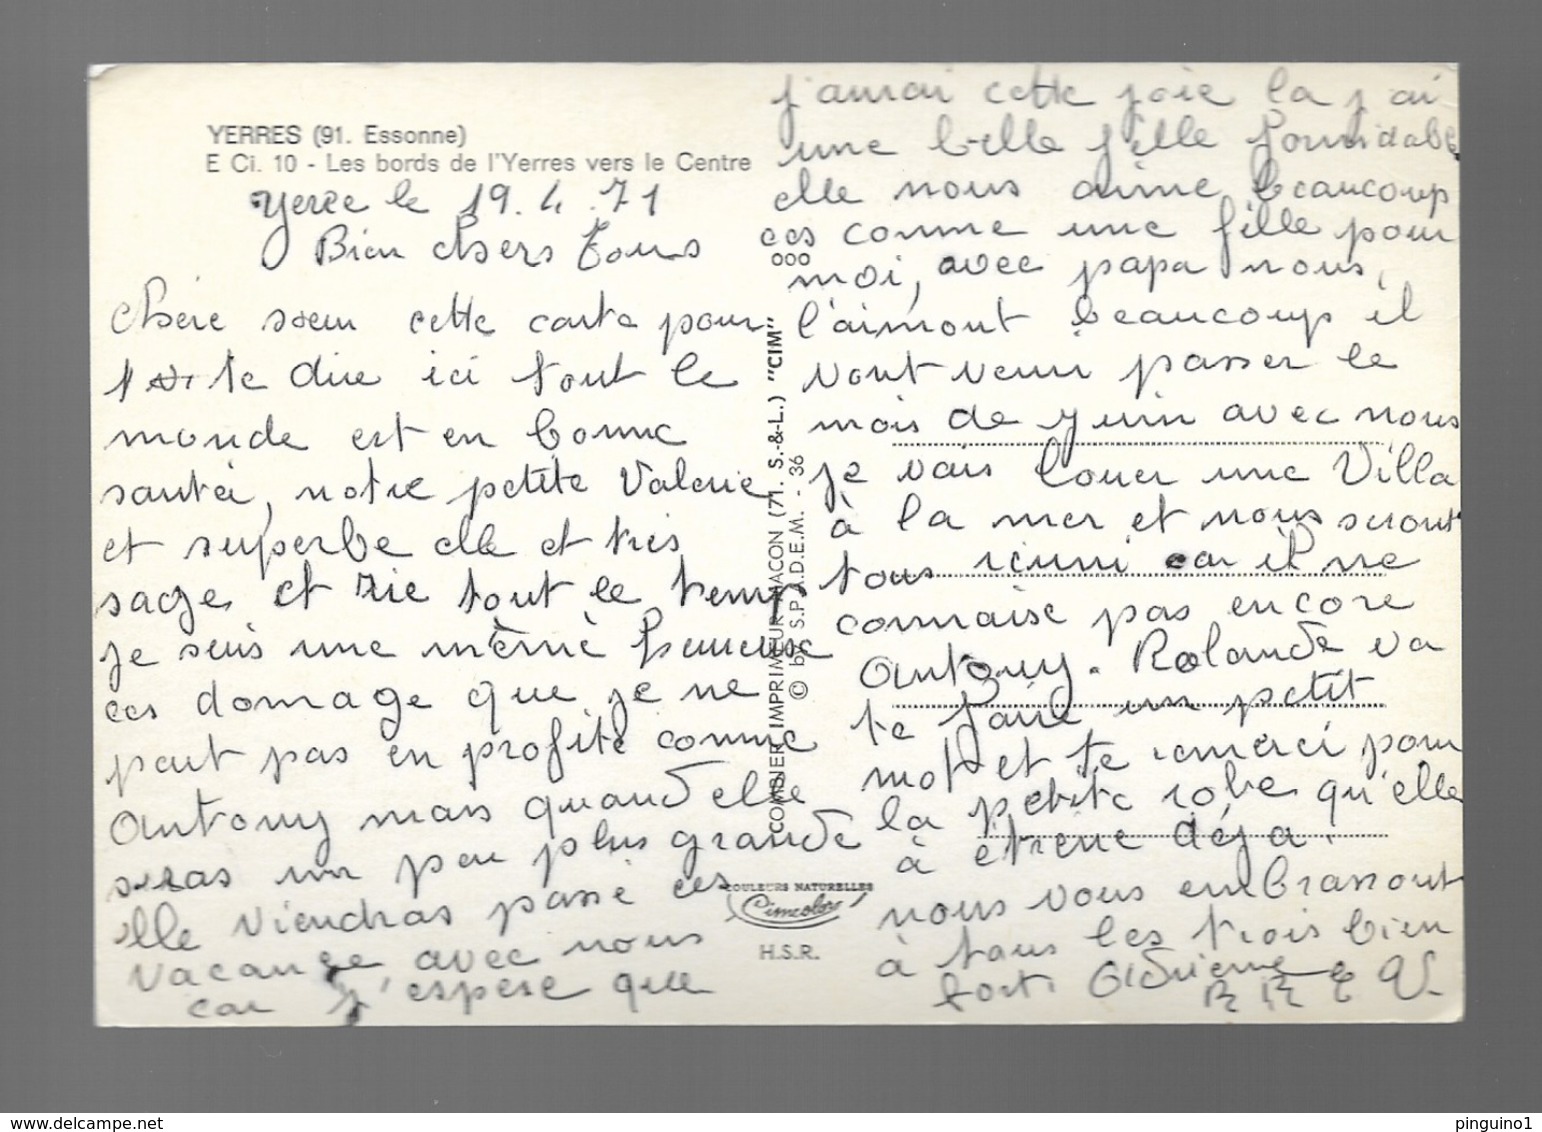 YERRES (91. Essonne)
E Ci. 10 - Les bords de l'Yerres vers le Centre
Yerre le 19.4.71
Bien chers tous
chère sœur cette carte pour
te dire ici tout le
monde est en bonne
santéi, notre petite Valerie
et superbe elle et très
sage et rie tout le temps
je suis une mémé heureuse
ces domage que je ne
peut pas en profité comme
Antony mais quand elle
seras un peu plus grande
elle viendras passé ces
vacance avec nous
car j'espère que
j'aurai cette joie la j'ai
une belle fille formidable
elle nous aime beaucoup
ces comme une fille pour
moi, avec papa nous,
l'aimont beaucoup il
vont venir passer le
mois de juin avec nous
je vais louer une Villa
à la mer et nous seront
tous réuni car il ne
connaise pas encore
Antony. Rolande va
te faire un petit
mot et te remerci pour
la petite robe qu'elle
à étrene déja.
nous vous embrassont
à tous les trois bien
fort. Adrienne
COMBIER IMPRIMEUR MACON (71. S.-&-L.) "CIM"
© by S.P.A.D.E.M. - 36
COULEURS NATURELLES
Cimcolor
H.S.R.
pinguino1